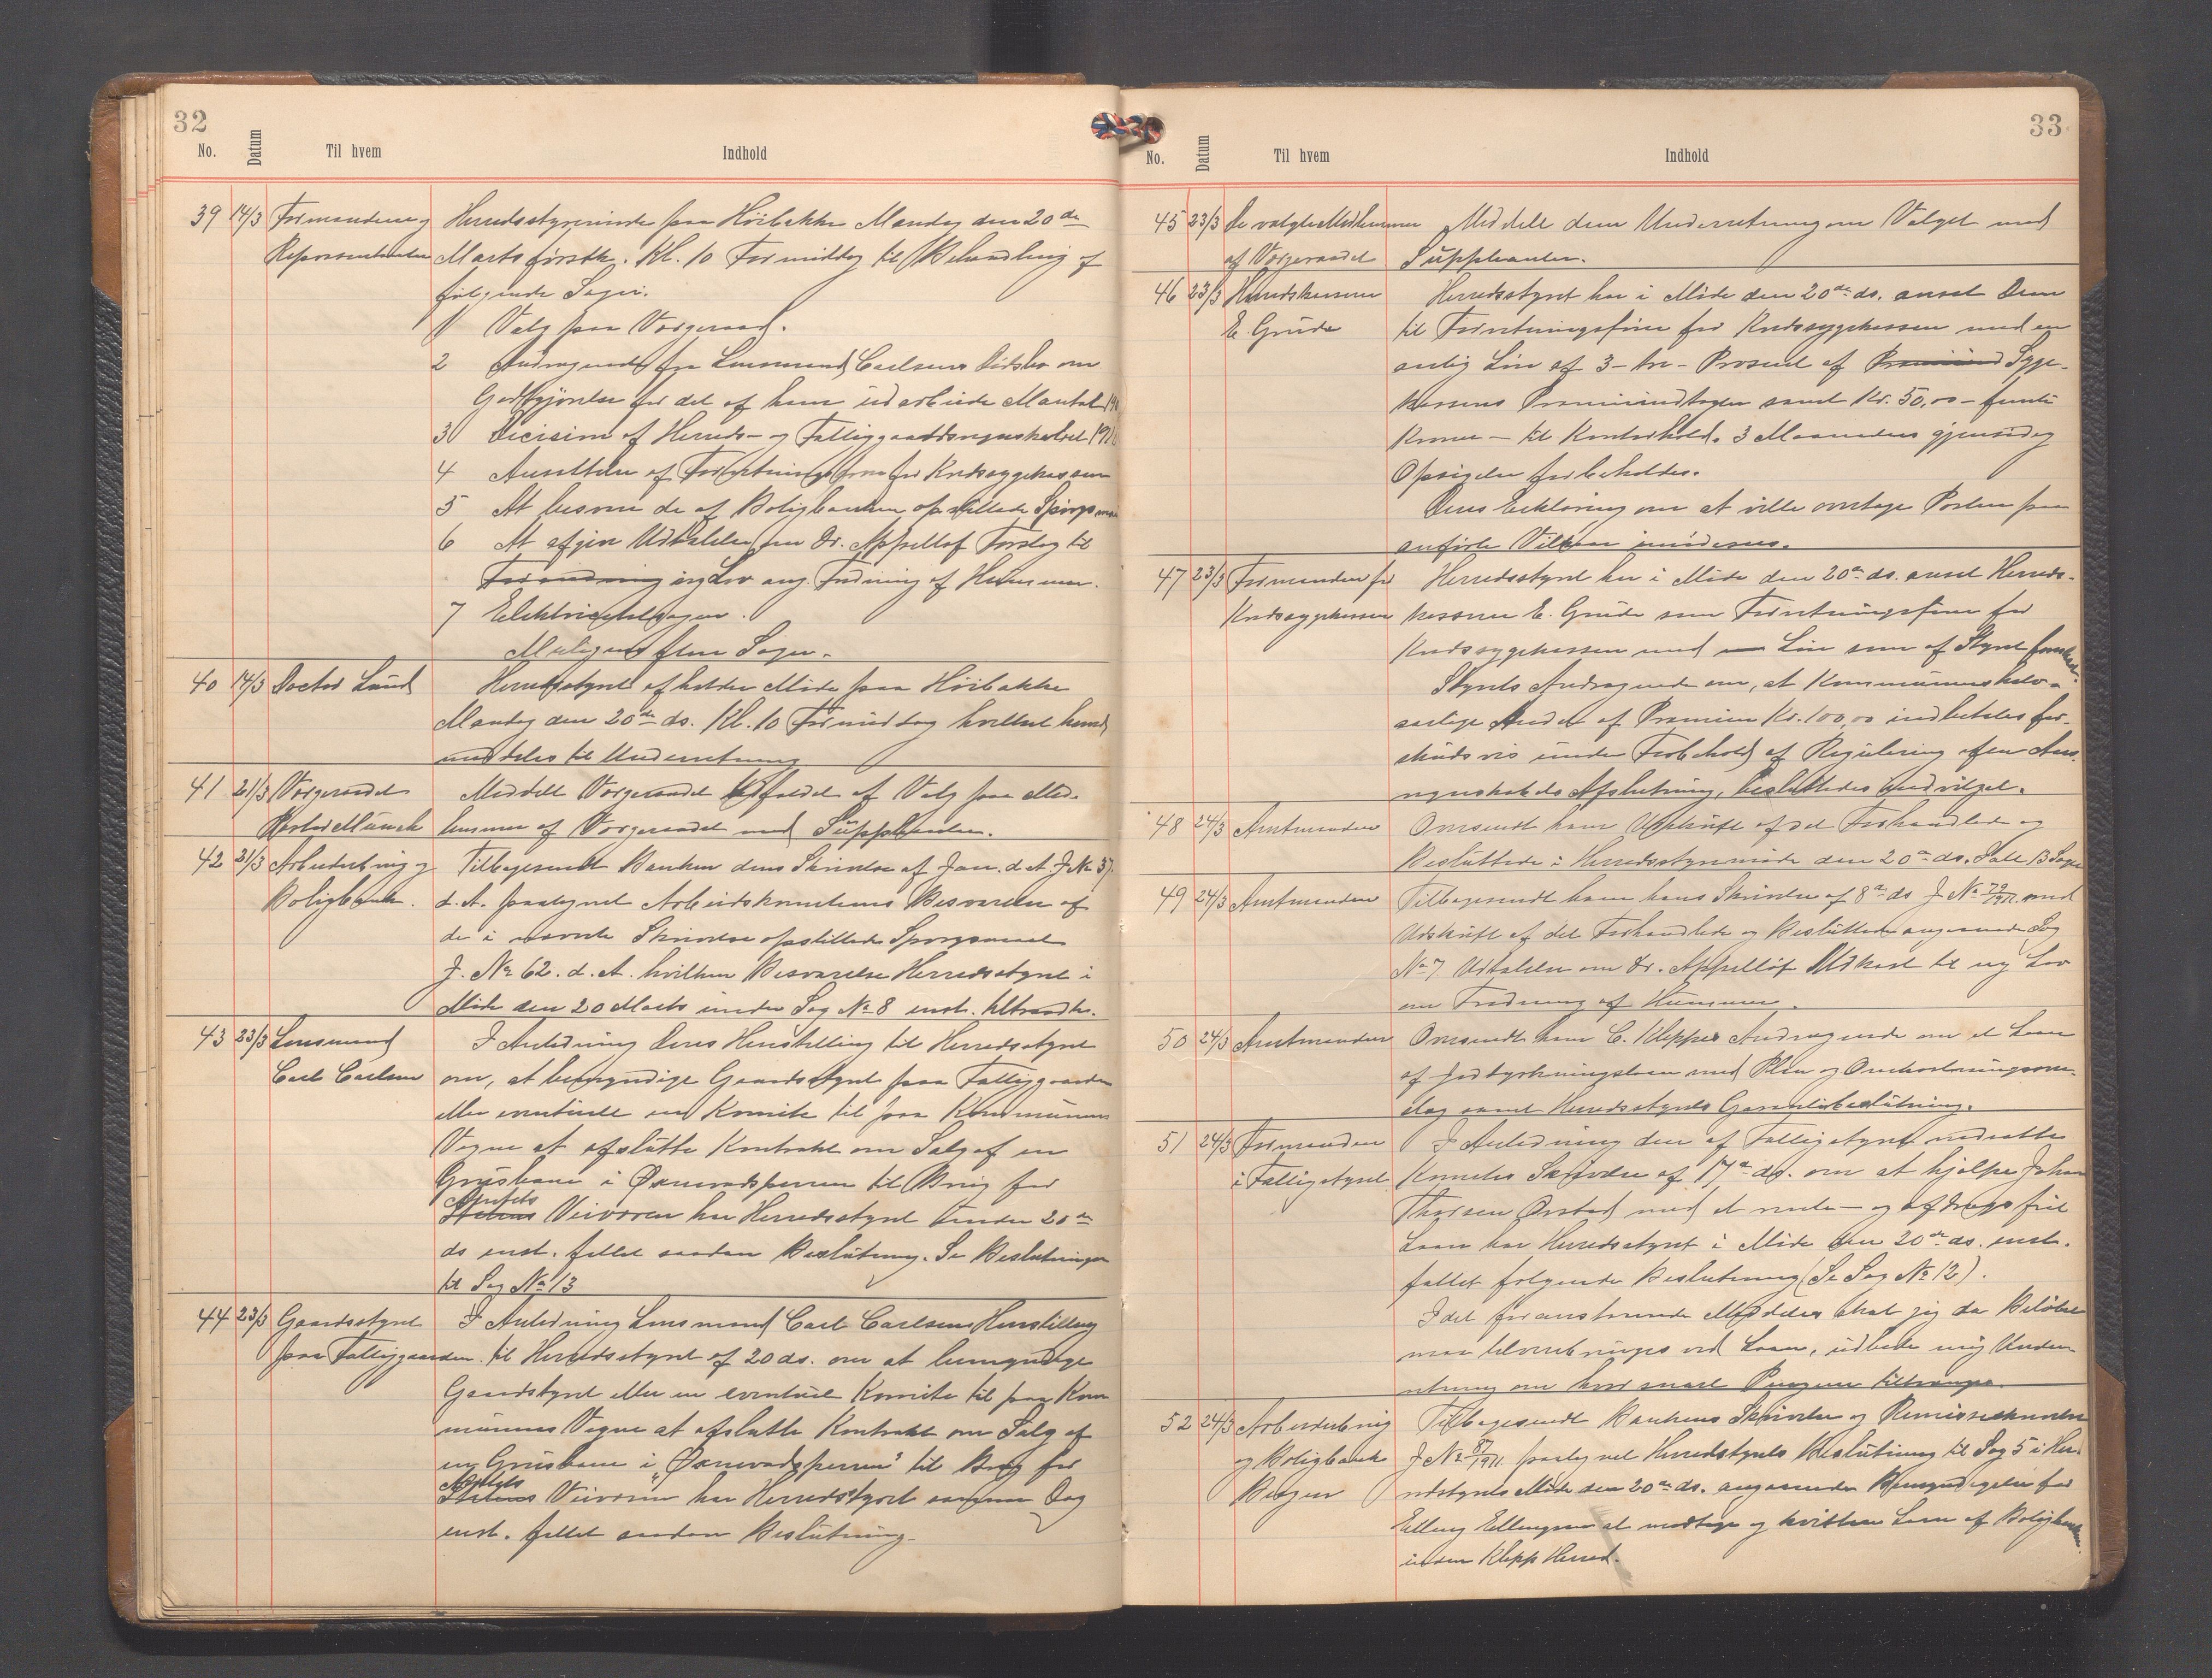 32
No. Datum Til hvem Indhold
39 14/3 Formændene og Herredsstyremøde paa Höibakke Mandag den 20de
Repræsentanter Marts førstk. Kl. 10 Formiddag til Behandling af
følgende Sager.
1 Valg paa Værgeraad.
2 Andragende fra Lensmand Carlsens Dødsbo om
Godtgjørelse for det af ham udarbeide Mantal
3 Decision af Herreds- og Fattiggaardsregnskabet
4 Ansættelse af Forretningsfører for Kredssygekassen
5 At besvare de af Boligbanken opstillede Spørgsmaal
6 At afgive Udtalelse om Dr. Appelløf Forslag til
Forandring ny Lov ang. Fredning af Hummer.
7 Elektricitetssagen.
Muligens flere Sager.
40 14/3 Doctor Lund Herredsstyret afholder Møde paa Höibakke
Mandag den 20de ds. Kl. 10 Formiddag hvilket herved
meddeles til Underretning
41 21/3 Værgeraadet Meddelt Værgeraadet Udfaldet af Valg paa Med-
Pastor Munch lemmer af Værgeraadet med Suppleanter.
42 21/3 Arbeiderbrug og Tilbagesendt Banken dens Skrivelse af Jan. d. A. J. No 37
Boligbank. d. A. paategnet Arbeidskomiteens Besvarelse af
de i nævnte Skrivelse opstillede Spørgsmaal
J. No 62. d. A. hvilken Besvarelse Herredsstyret i
Møde den 20 Marts under Sag No 8 enst. tiltraadte.
43 23/3 Lensmand I Anledning Deres Henstilling til Herredsstyret
Carl Carlsen om, at bemyndige Gaardsstyret paa Fattiggaarden
eller eventuelt en Komite til paa Kommunens
Vegne at afslutte Kontrakt om Salg af en
Grusbane i Ørnevadsperren til Brug for
Amtets
Statens Veivæsen har Herredsstyret under 20de
ds enst. fattet saadan Beslutning. Se Beslutningen
til Sag No 13
44 23/3 Gaardsstyret I Anledning Lensmand Carl Carlsens Henstilling
paa Fattiggaarden. til Herredsstyret af 20 ds. om at bemyndige
Gaardsstyret eller en eventuel Komite til paa Kom-
munens Vegne at afslutte Kontrakt om Salg af
en Grusbane i "Ørnevadsperren" til Brug for
Amtets
Statens Veivæsen har Herredsstyret samme Dag
enst. fattet saadan Beslutning.
33
No. Datum Til hvem Indhold
45 23/3 De valgte Medlemmer Meddelt dem Underretning om Valget med
af Værgeraadet Suppleanter.
46 23/3 Herredskasserer Herredsstyret har i Møde den 20de ds. ansat Dem
E. Grude til Forretningsfører for Kredssygekassen med en
aarlig Løn af 3 - tre - Prosent af Præmieind Syge-
kassens Præmieindtægter samt Kr. 50,00 - femti
Kroner - til Kontorhold. 3 Maaneders gjensidig
Opsigelse forbeholdes.
Deres Erklæring om at ville overtage Posten paa
anførte Vilkaar imødesees.
47 23/3 Formanden for Herredsstyret har i Møde den 20de ds. ansat Herreds-
Kredssygekassen kasserer E. Grude som Forretningsfører for
Kredssygekassen med Løn som af Styret
Styrets Andragende om, at Kommunens halv-
aarlige Andel af Præmien Kr. 100,00 indbetales for-
skudsvis under Forbehold af Regulering efter Aars-
regnskabets Afslutning, besluttedes indvilget.
48 24/3 Amtmanden Omsendt ham Udskrift af det Forhandlede og
Besluttede i Herredsstyremøde den 20de ds. Ialt 13 Sager
49 24/3 Amtmanden Tilbagesendt ham hans Skrivelse af 8de ds J No 79/1911 med
Udskrift af det Forhandlede og Besluttede angaaende Sag
No 7 Udtalelse om Dr. Appelløf Udkast til ny Lov
om Fredning af Hummer.
50 24/3 Amtmanden Omsendt ham C. Kleppes Andragende om et Laan
af Jorddyrkningsfonden med Plan og Omkostningsover-
slag samt Herredsstyrets Garantibeslutning.
51 24/3 Formanden I Anledning den af Fattigstyret nedsatte
i Fattigstyret Komites Skrivelse af 17de ds. om at hjælpe Johan
Thorsen Orstad med et rente- og afdragsfrit
Laan har Herredsstyret i Møde den 20de ds. enst.
fattet følgende Beslutning (Se Sag No 12).
I det foranstaaende Meddeles skal jeg da Beløbet
maa tilveiebringes ved Laan, udbede mig Under-
retning om hvor snart Pengene tiltrænges.
52 24/3 Arbeiderbrug Tilbagesendt Bankens Skrivelse og Remisseskrivelse
og Boligbank J No 87/1911. paategnet Herredsstyrets Beslutning til Sag 5 i Her-
Bergen redsstyrets Møde den 20de ds. angaaende Bemyndigelse for
Elling Ellingsen at modtage og kvittere Laan af Boligbanken
inden Klepp Herred.